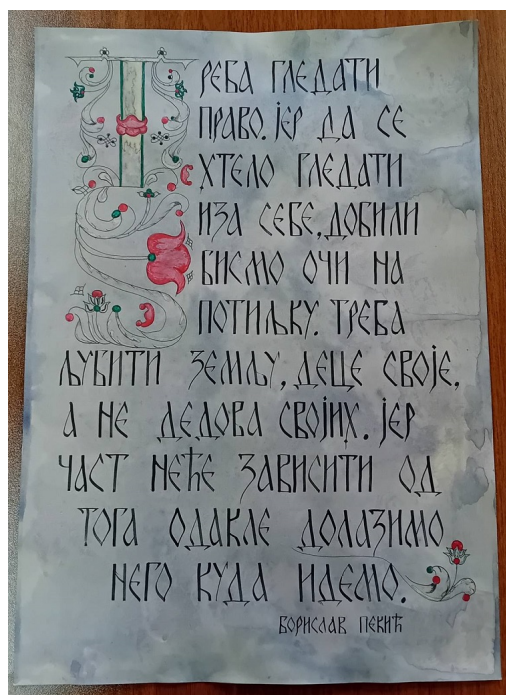 Треба гледати
право. Јер да се
хтело гледати
иза себе, добили
бисмо очи на
потиљку. Треба
љубити земљу, деце своје,
а не дедова својих. Јер
част неће зависити од
тога одакле долазимо
него куда идемо.
Борислав Пекић